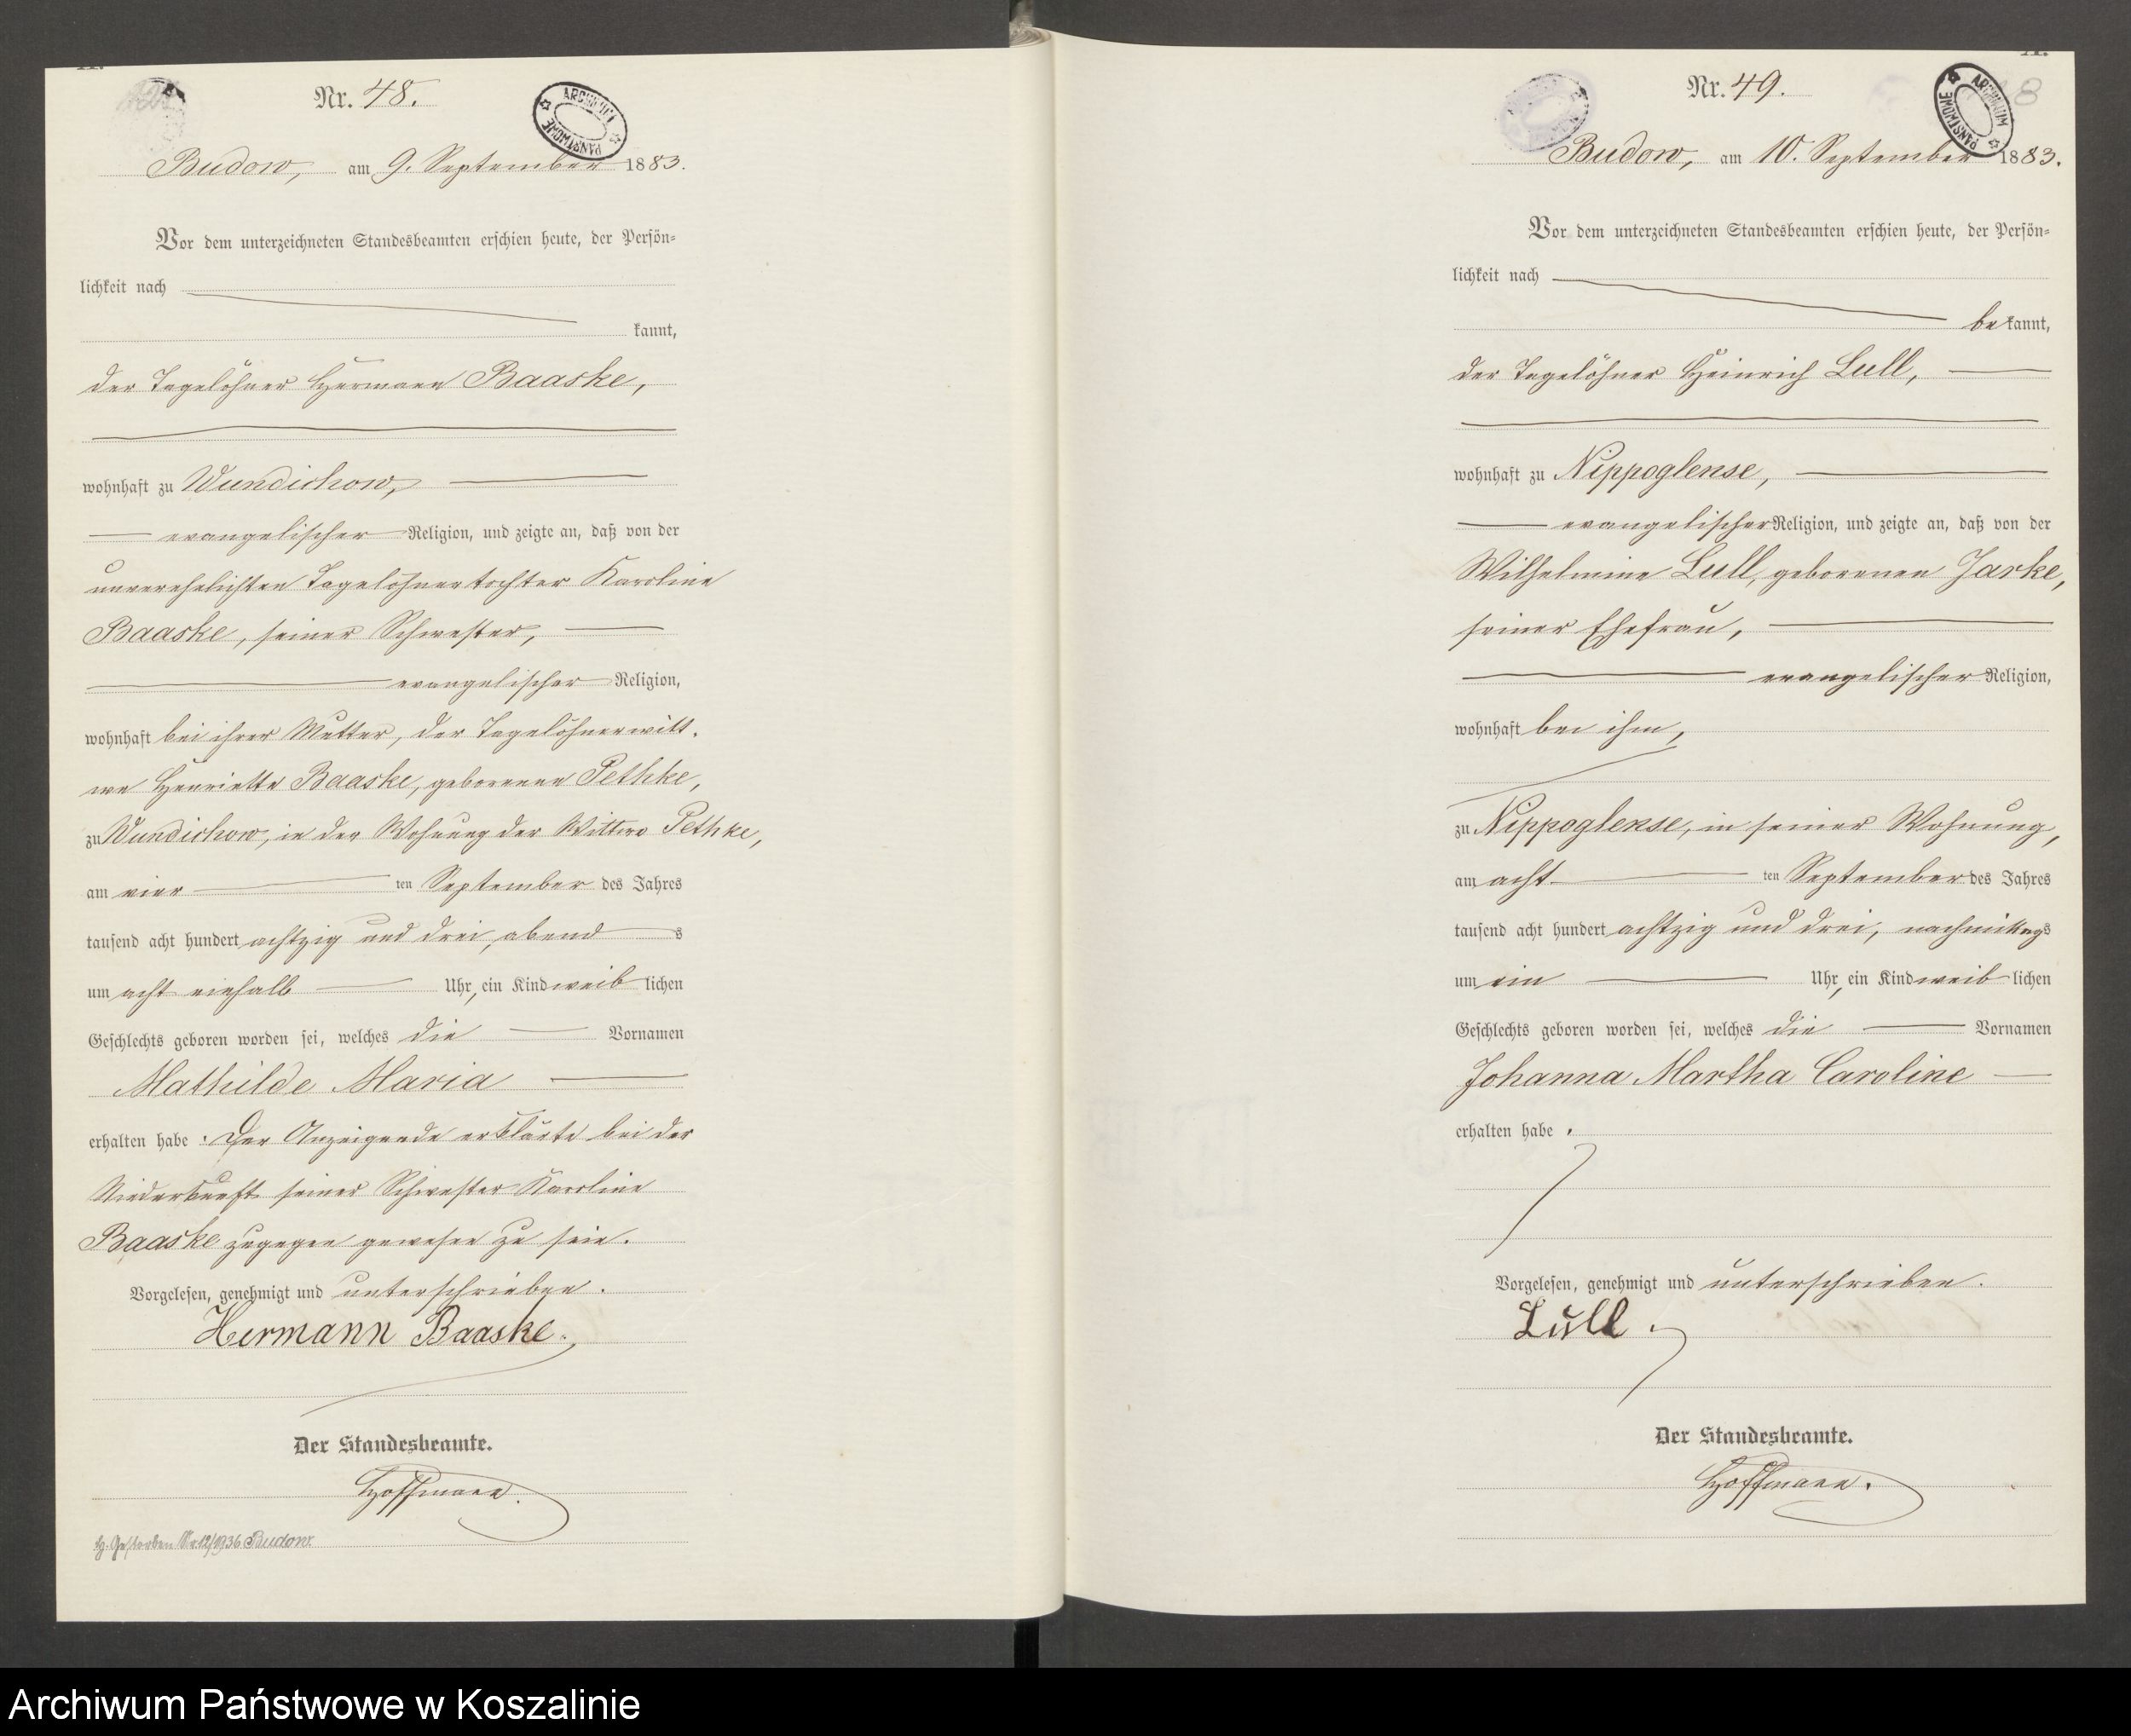 Nr. 48.
ARCHIWUM PAŃSTWOWE
Budow, am 9. September 1883.
Vor dem unterzeichneten Standesbeamten erschien heute, der Persön-
lichkeit nach
kannt,
der Tagelöhner Hermann Baaske,
wohnhaft zu Wundichow,
evangelischer Religion, und zeigte an, daß von der
unverehelichten Tagelöhnertochter Karoline
Baaske, seiner Schwester,
evangelischer Religion,
wohnhaft bei ihrer Mutter, der Tagelöhnerwitt-
we Henriette Baaske, geborenen Pethke,
zu Wundichow, in der Wohnung der Wittwe Pethke,
am vier ten September des Jahres
tausend acht hundert achtzig und drei, abend s
um acht einhalb Uhr, ein Kind weib lichen
Geschlechts geboren worden sei, welches die Vornamen
Mathilde Maria
erhalten habe. Der Anzeigende erklärte bei der
Niederkunft seiner Schwester Karoline
Baaske zugegen gewesen zu sein.
Vorgelesen, genehmigt und unterschrieben.
Hermann Baaske.
Der Standesbeamte.
Hoffmann.
Gestorben Nr. 12/1936 Budow.
Nr. 49.
ARCHIWUM PAŃSTWOWE
8
Budow, am 10. September 1883.
Vor dem unterzeichneten Standesbeamten erschien heute, der Persön-
lichkeit nach
be kannt,
der Tagelöhner Heinrich Lull,
wohnhaft zu Nippoglense,
evangelischer Religion, und zeigte an, daß von der
Wilhelmine Lull, geborenen Jarke,
seiner Ehefrau,
evangelischer Religion,
wohnhaft bei ihm,
zu Nippoglense, in seiner Wohnung,
am acht ten September des Jahres
tausend acht hundert achtzig und drei, nachmittags
um ein Uhr, ein Kind weib lichen
Geschlechts geboren worden sei, welches die Vornamen
Johanna Martha Caroline
erhalten habe.
Vorgelesen, genehmigt und unterschrieben.
Lull.
Der Standesbeamte.
Hoffmann.
Archiwum Państwowe w Koszalinie